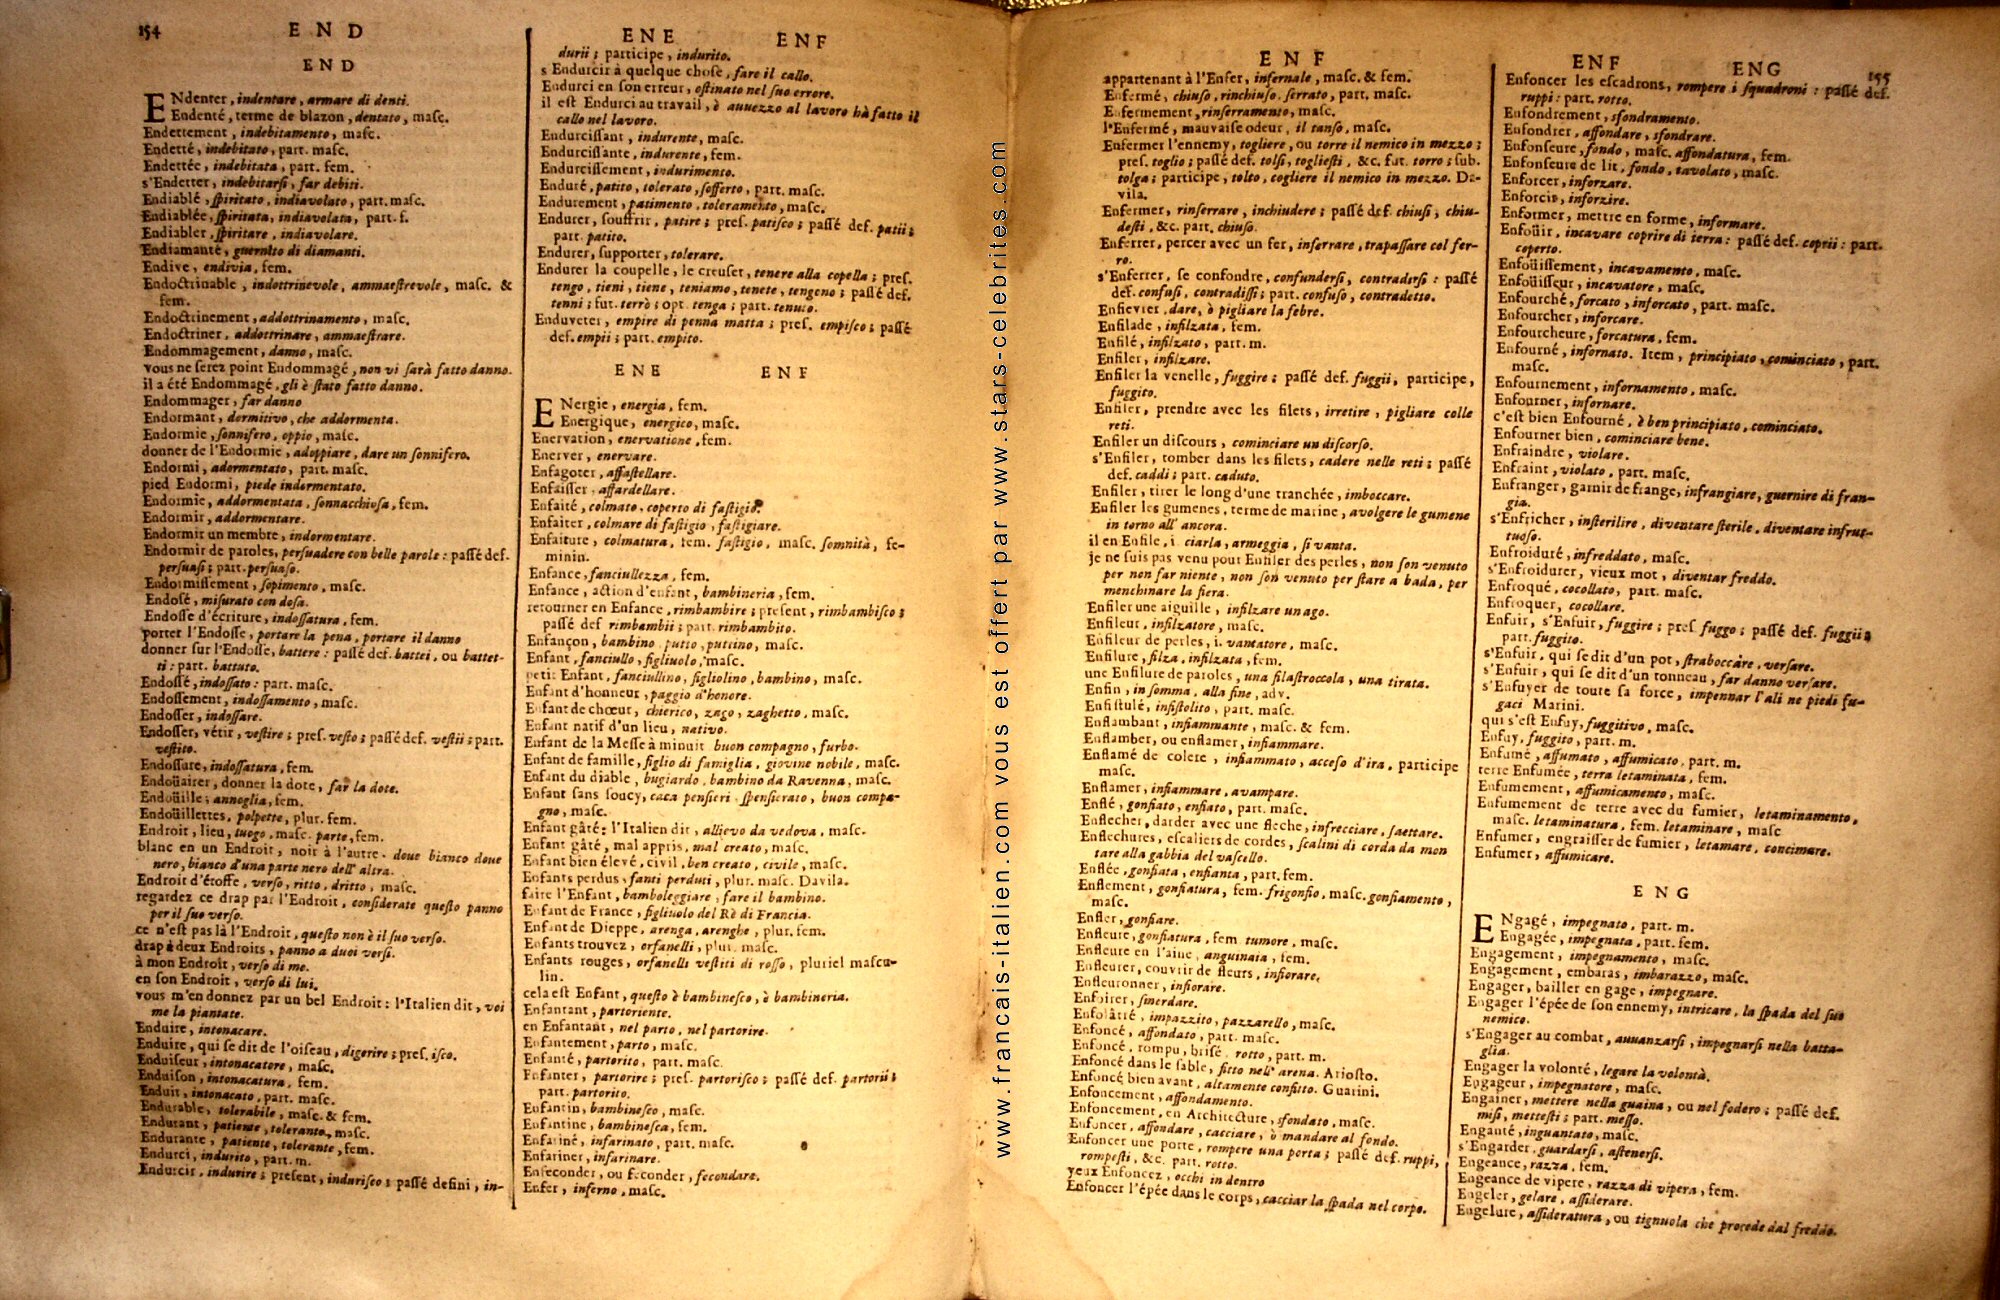 154 END
END
ENdenter, indentare, armare di denti.
Endenté, terme de blazon, dentato, masc.
Endettement, indebitamento, masc.
Endetté, indebitato, part. masc.
Endettée, indebitata, part. fem.
s'Endetter, indebitarsi, far debiti.
Endiablé, spiritato, indiavolato, part. masc.
Endiablée, spiritata, indiavolata, part. f.
Endiabler, spiritare, indiavolare.
Endiamanté, guernito di diamanti.
Endive, endivia, fem.
Endoctrinable, indottrinevole, ammaestrevole, masc. &
fem.
Endoctrinement, addottrinamento, masc.
Endoctriner, addottrinare, ammaestrare.
Endommagement, danno, masc.
vous ne serez point Endommagé, non vi sarà fatto danno.
il a été Endommagé, gli è stato fatto danno.
Endommager, far danno
Endormant, dormitivo, che addormenta.
Endormie, sonnifero, oppio, masc.
donner de l'Endormie, adoppiare, dare un sonnifero.
Endormi, adormentato, part. masc.
pied Endormi, piede indormentato.
Endormie, addormentata, sonnacchiosa, fem.
Endormir, addormentare.
Endormir un membre, indormentare.
Endormir de paroles, persuadere con belle parole : passé def.
persuasi ; part. persuaso.
Endormissement, sopimento, masc.
Endosé, misurato con dosa.
Endosse d'écriture, indossatura, fem.
porter l'Endosse, portare la pena, portare il danno
donner sur l'Endosse, battere : passé def. battei, ou battet-
ti : part. battuto.
Endossé, indossato : part. masc.
Endossement, indossamento, masc.
Endosser, indossare.
Endosser, vétir, vestire ; pres. vesto ; passé def. vestii ; part.
vestito.
Endossure, indossatura, fem.
Endoüairer, donner la dote, far la dote.
Endoüille, annoglia, fem.
Endoüillettes, polpette, plur. fem.
Endroit, lieu, luogo, masc. parte, fem.
blanc en un Endroit, noir à l'autre. doue bianco doue
nero, bianco d'una parte nero dell' altra.
Endroit d'étoffe, verso, ritto, dritto, masc.
regardez ce drap par l'Endroit, considerate questo panno
per il suo verso.
ce n'est pas là l'Endroit, questo non è il suo verso.
drap à deux Endroits, panno a duoi versi.
à mon Endroit, verso di me.
en son Endroit, verso di lui.
vous m'en donnez par un bel Endroit : l'Italien dit, voi
me la piantate.
Enduire, intonacare.
Enduire, qui se dit de l'oiseau, digerire ; pres. isco.
Enduiseur, intonacatore, masc.
Enduison, intonacatura, fem.
Enduit, intonacato, part. masc.
Endurable, tolerabile, masc. & fem.
Endurant, patiente, tolerante, masc.
Endurante, patiente, tolerante, fem.
Endurci, indurito, part. m.
Endurcir, indurire ; present, indurisco ; passé defini, in-
ENE ENF
durii ; participe, indurito.
s Endurcir à quelque chose, fare il callo.
Endurci en son erreur, ostinato nel suo errore.
il est Endurci au travail, è auuezzo al lavoro hà fatto il
callo nel lavoro.
Endurcissant, indurente, masc.
Endurcissante, indurente, fem.
Endurcissement, indurimento.
Enduré, patito, tolerato, sofferto, part. masc.
Endurement, patimento, toleramento, masc.
Endurer, souffrir, patire ; pres. patisco ; passé def. patii ;
part. patito.
Endurer, supporter, tolerare.
Endurer la coupelle, le creuset, tenere alla copella ; pres.
tengo, tieni, tiene, teniamo, tenete, tengono ; passé def.
tenni ; fut. terrò ; opt. tenga ; part. tenuto.
Enduveter, empire di penna matta ; pres. empisco ; passé
def. empii ; part. empito.
ENE ENF
ENergie, energia, fem.
Energique, energico, masc.
Enervation, enervatione, fem.
Enerver, enervare.
Enfagoter, affastellare.
Enfaisser, affardellare.
Enfaité, colmato, coperto di fastigio.
Enfaiter, colmare di fastigio, fastigiare.
Enfaiture, colmatura, fem. fastigio, masc. somnità, fe-
minin.
Enfance, fanciullezza, fem.
Enfance, action d'enfant, bambineria, fem.
retourner en Enfance, rimbambire ; present, rimbambisco ;
passé def rimbambii ; part. rimbambito.
Enfançon, bambino putto, puttino, masc.
Enfant, fanciullo, figliuolo, masc.
petit Enfant, fanciullino, figliolino, bambino, masc.
Enfant d'honneur, paggio d'honore.
Enfant de chœur, chierico, zago, zaghetto, masc.
Enfant natif d'un lieu, nativo.
Enfant de la Messe à minuit buon compagno, furbo.
Enfant de famille, figlio di famiglia, giovine nobile, masc.
Enfant du diable, bugiardo, bambino da Ravenna, masc.
Enfant sans soucy, caca pensieri spensierato, buon compa-
gno, masc.
Enfant gâté : l'Italien dit, allievo da vedova, masc.
Enfant gâté, mal appris, mal creato, masc.
Enfant bien élevé, civil, ben creato, civile, masc.
Enfants perdus, fanti perduti, plur. masc. Davila.
faire l'Enfant, bamboleggiare, fare il bambino.
Enfant de France, figliuolo del Rè di Francia.
Enfant de Dieppe, arenga, arenghe, plur. fem.
Enfants trouvez, orfanelli, plur. masc.
Enfants rouges, orfanelli vestiti di rosso, pluriel mascu-
lin.
cela est Enfant, questo è bambinesco, è bambineria.
Enfantant, partoriente.
en Enfantant, nel parto, nel partorire.
Enfantement, parto, masc.
Enfanté, partorito, part. masc.
Enfanter, partorire ; pres. partorisco ; passé def. partorii ;
part. partorito.
Enfantin, bambinesco, masc.
Enfantine, bambinesca, fem.
Enfariné, infarinato, part. masc.
Enfariner, infarinare.
Enfeconder, ou feconder, fecondare.
Enfer, inferno, masc.
ENF
appartenant à l'Enfer, infernale, masc. & fem.
Enfermé, chiuso, rinchiuso, serrato, part. masc.
Enfermement, rinserramento, masc.
l'Enfermé, mauvaise odeur, il tanfo, masc.
Enfermer l'ennemy, togliere, ou torre il nemico in mezzo ;
pres. toglio ; passé def. tolsi, togliesti, &c. fut. torro ; sub.
tolga ; participe, tolto, cogliere il nemico in mezzo. Da-
vila.
Enfermer, rinserrare, inchiudere ; passé def. chiusi, chiu-
desti, &c. part. chiuso.
Enferrer, percer avec un fer, inferrare, trapassare col fer-
ro.
s'Enferrer, se confondre, confundersi, contradersi : passé
def. confusi, contradissi ; part. confuso, contradetto.
Enfievrer, dare, ò pigliare la febre.
Enfilade, infilzata, fem.
Enfilé, infilzato, part. m.
Enfiler, infilzare.
Enfiler la venelle, fuggire ; passé def. fuggii, participe,
fuggito.
Enfiler, prendre avec les filets, irretire, pigliare colle
reti.
Enfiler un discours, cominciare un discorso.
s'Enfiler, tomber dans les filets, cadere nelle reti ; passé
def. caddi ; part. caduto.
Enfiler, tirer le long d'une tranchée, imboccare.
Enfiler les gumenes, terme de marine, avolgere le gumene
in torno all' ancora.
il en Enfile, i. ciarla, armeggia, si vanta.
je ne suis pas venu pour Enfiler des perles, non son venuto
per non far niente, non son venuto per stare a bada, per
menchinare la fiera.
Enfiler une aiguille, infilzare un ago.
Enfileur, infilzatore, masc.
Enfileur de perles, i. vantatore, masc.
Enfilure, filza, infilzata, fem.
une Enfilure de paroles, una filastroccola, una tirata.
Enfin, in somma, alla fine, adv.
Enfistulé, infistolito, part. masc.
Enflambant, infiammante, masc. & fem.
Enflamber, ou enflamer, infiammare.
Enflamé de colere, infiammato, acceso d'ira, participe
masc.
Enflamer, infiammare, avampare.
Enflé, gonfiato, enfiato, part. masc.
Enflecher, darder avec une fleche, infrecciare, saettare.
Enflechures, escaliers de cordes, scalini di corda da mon
tare alla gabbia del vascello.
Enflée, gonfiata, enfianta, part. fem.
Enflement, gonfiatura, fem. frigonfio, masc. gonfiamento,
masc.
Enfler, gonfiare.
Enfleure, gonfiatura, fem tumore, masc.
Enfleure en l'aine, anguinaia, fem.
Enfleurer, couvrir de fleurs, infiorare,
Enfleuronner, infiorare.
Enfoirer, smerdare.
Enfolâtré, impazzito, pazzarello, masc.
Enfoncé, affondato, part. masc.
Enfoncé, rompu, brisé, rotto, part. m.
Enfoncé dans le sable, fitto nell' arena. Ariosto.
Enfoncé bien avant, altamente confitto. Guarini.
Enfoncement, affondamento.
Enfoncement, en Architecture, sfondato, masc.
Enfoncer, affondare, cacciare, ò mandare al fondo.
Enfoncer une porte, rompere una porta ; passé def. ruppi,
rompesti, &c. part. rotto.
yeux Enfoncez, occhi in dentro
Enfoncer l'épée dans le corps, cacciar la spada nel corpo.
ENF ENG 155
Enfoncer les escadrons, rompere i squadroni : passé def.
ruppi : part. rotto.
Enfondrement, sfondramento.
Enfondrer, affondare, sfondrare.
Enfonseure, fondo, masc. affondatura, fem.
Enfonseure de lit, fondo, tavolato, masc.
Enforcer, inforzare.
Enforcir, inforzire.
Enformer, mettre en forme, informare.
Enfoüir, incavare coprire di terra : passé def. coprii : part.
coperto.
Enfoüissement, incavamento, masc.
Enfoüisseur, incavatore, masc.
Enfourché, forcato, inforcato, part. masc.
Enfourcher, inforcare.
Enfourcheure, forcatura, fem.
Enfourné, infornato. Item, principiato, cominciato, part.
masc.
Enfournement, infornamento, masc.
Enfourner, infornare.
c'est bien Enfourné, è ben principiato, cominciato.
Enfourner bien, cominciare bene.
Enfraindre, violare.
Enfraint, violato, part. masc.
Enfranger, garnir de frange, infrangiare, guernire di fran-
gia.
s'Enfricher, insterilire, diventare sterile, diventare infrut-
tuoso.
Enfroiduré, infreddato, masc.
s'Enfroidurer, vieux mot, diventar freddo.
Enfroqué, cocollato, part. masc.
Enfroquer, cocollare.
Enfuir, s'Enfuir, fuggire ; pres fuggo ; passé def. fuggii ;
part. fuggito.
s'Enfuir, qui se dit d'un pot, straboccare, versare.
s'Enfuir, qui se dit d'un tonneau, far danno versare.
s'Enfuyer de toute sa force, impennar l'ali ne piedi fu-
gaci Marini.
qui s'est Enfuy, fuggitivo, masc.
Enfuy, fuggito, part. m.
Enfumé, affumato, affumicato, part. m.
terre Enfumée, terra letaminata, fem.
Enfumement, affumicamento, masc.
Enfumement de terre avec du fumier, letaminamento,
masc. letaminatura, fem. letaminare, masc
Enfumer, engraisser de fumier, letamare, concimare.
Enfumer, affumicare.
ENG
ENgagé, impegnato, part. m.
Engagée, impegnata, part. fem.
Engagement, impegnamento, masc.
Engagement, embaras, imbarazzo, masc.
Engager, bailler en gage, impegnare.
Engager l'épée de son ennemy, intricare, la spada del suo
nemico.
s'Engager au combat, avuanzarsi, impegnarsi nella batta-
glia.
Engager la volonté, legare la volontà.
Engageur, impegnatore, masc.
Engainer, mettere nella guaina, ou nel fodero ; passé def.
misi, mettesti ; part. messo.
Enganté, inguantato, masc.
s'Engarder, guardarsi, astenersi.
Engeance, razza, fem.
Engeance de vipere, razza di vipera, fem.
Engeler, gelare, assiderare.
Engelure, assideratura, ou tignuola che procede dal freddo.
www.francais-italien.com vous est offert par www.stars-celebrites.com